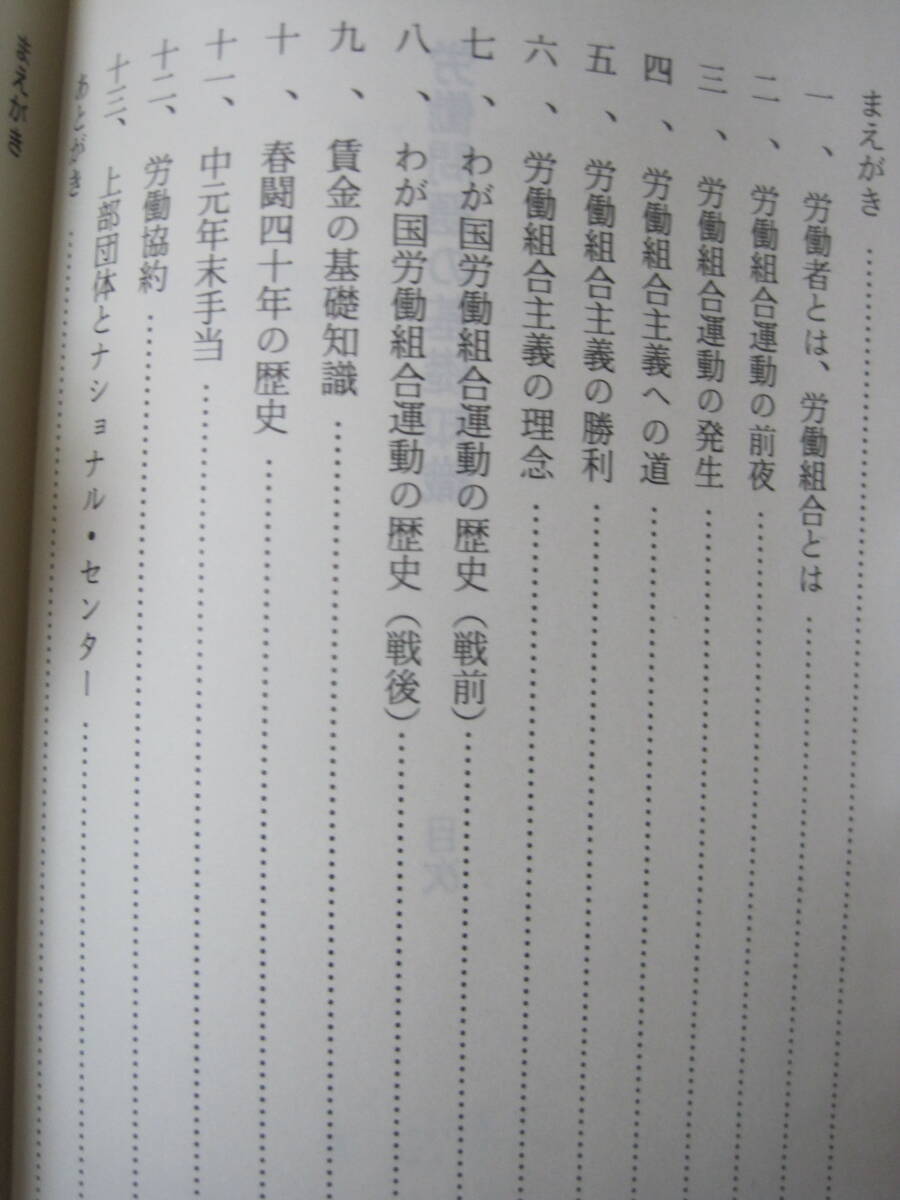 まえがき
一、労働者とは、労働組合とは
二、労働組合運動の前夜
三、労働組合運動の発生
四、労働組合主義への道
五、労働組合主義の勝利
六、労働組合主義の理念
七、わが国労働組合運動の歴史（戦前）
八、わが国労働組合運動の歴史（戦後）
九、賃金の基礎知識
十、春闘四十年の歴史
十一、中元年末手当
十二、労働協約
十三、上部団体とナショナル・センター
あとがき
まえがき